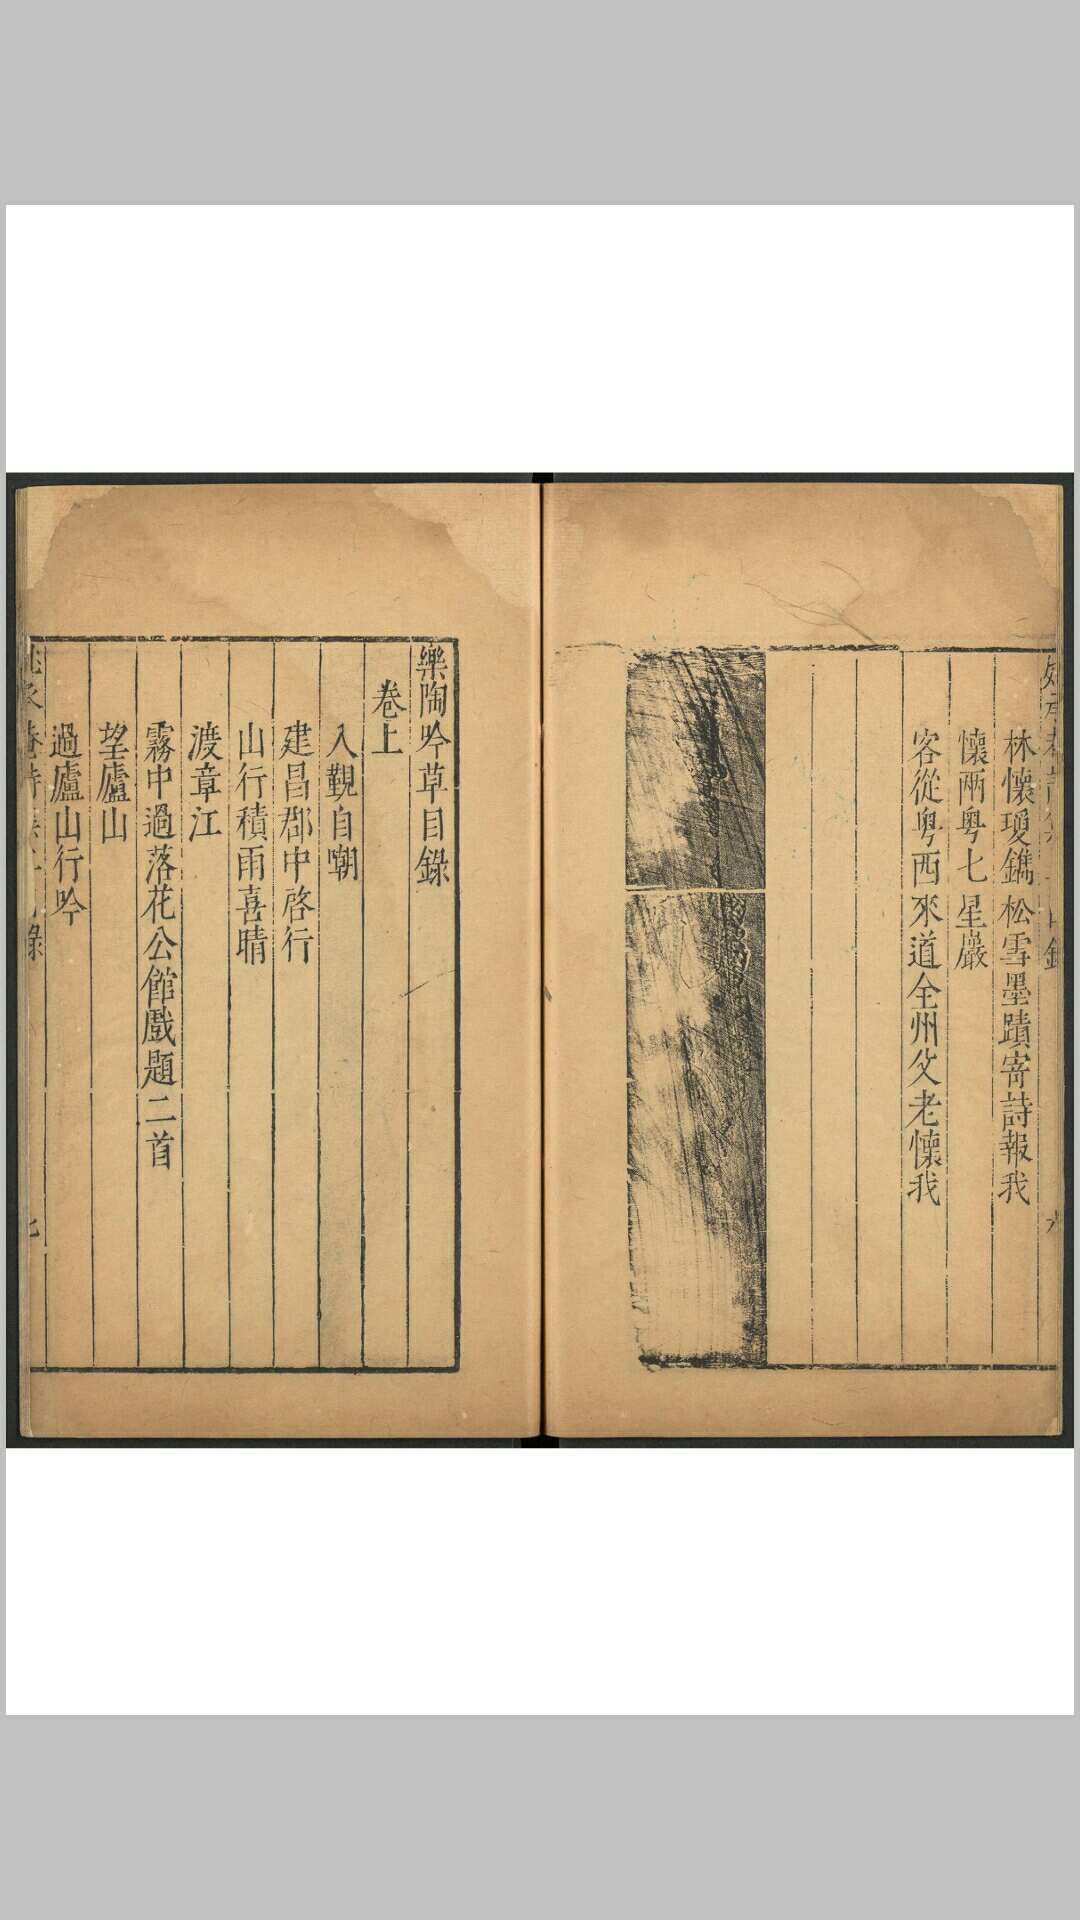 林懷瓊鐫松雪墨蹟寄詩報我
懷兩粵七星巖
客從粵西來道全州父老懷我
樂陶吟草目錄
卷上
入覲自嘲
建昌郡中啓行
山行積雨喜晴
渡章江
霧中過落花公館戲題二首
望廬山
過廬山行吟